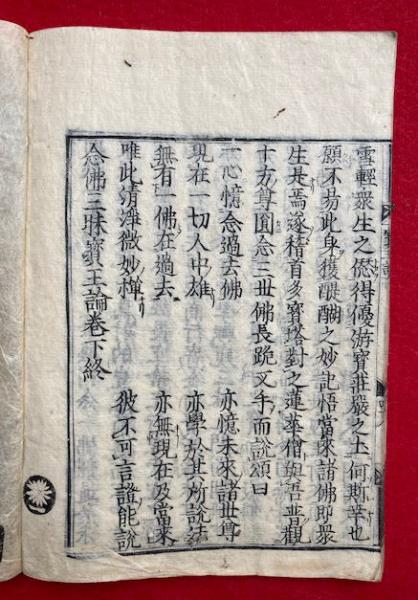 雪輕衆生之愆得優游寶莊嚴之土何斯幸也
願不易此身獲醍醐之妙記悟當來諸佛即衆
生是焉遂稽首多寶塔對之蓮華僧與吾普觀
十方尊圓念三世佛長跪叉手而說頌曰
一心憶念過去佛　亦憶未來諸世尊
現在一切人中雄　亦學於其所說法
無有一佛在過去　亦無現在及當來
唯此清淨微妙禪　彼不可言證能說
念佛三昧寶王論卷下終